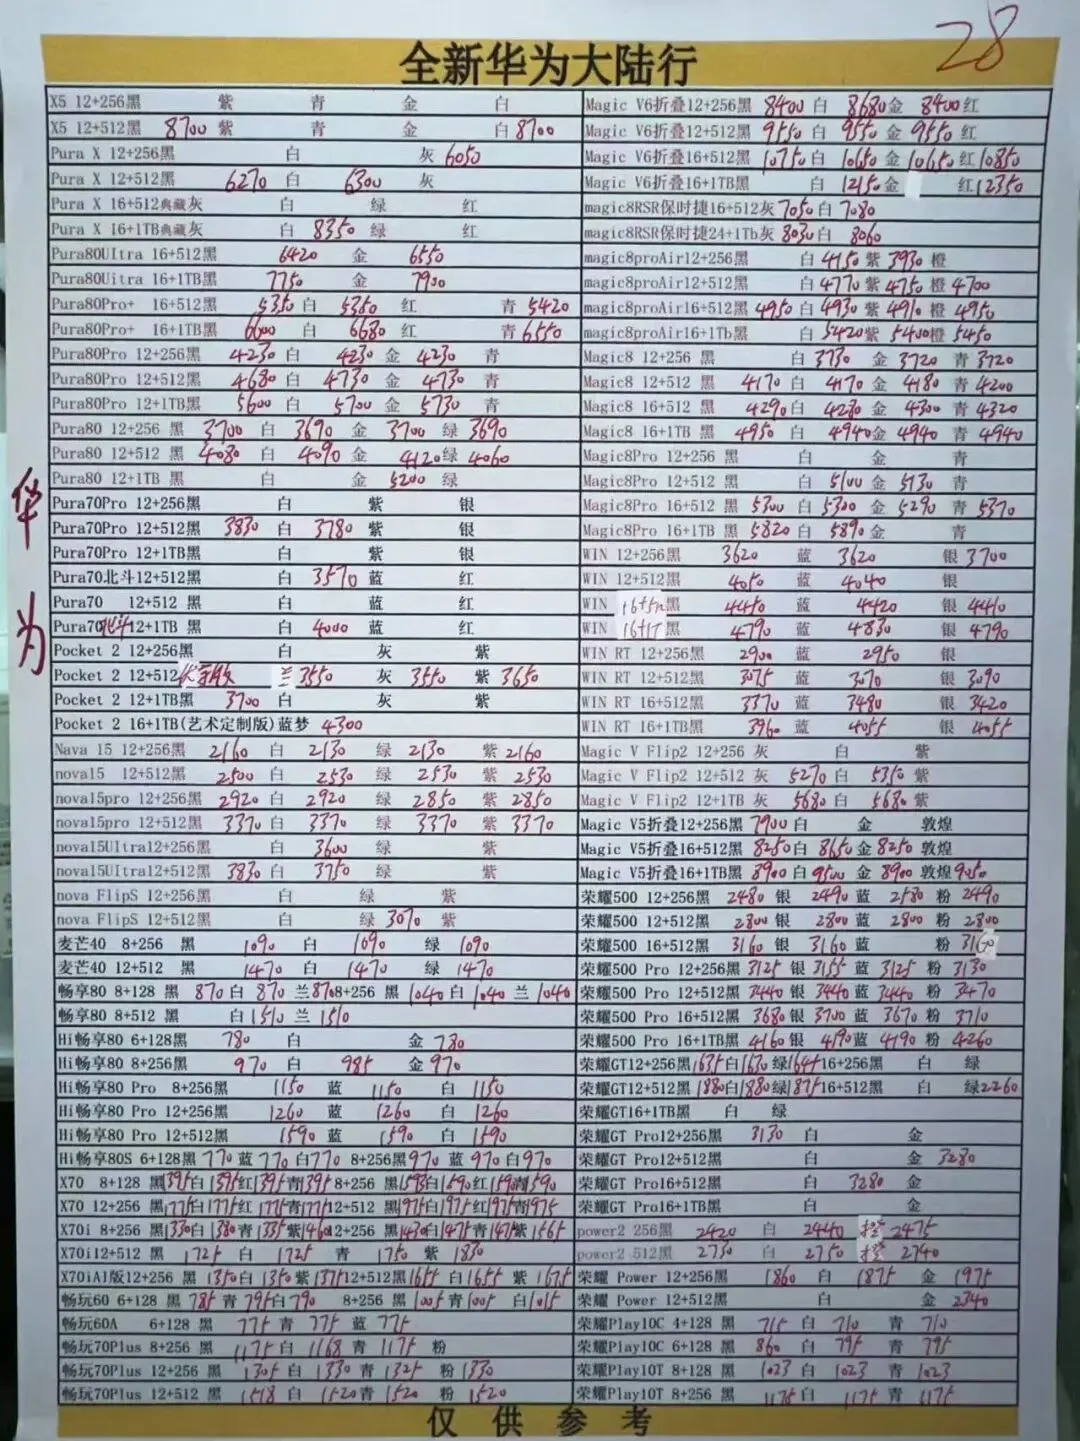 28
全新华为大陆行
华为
X5 12+256黑 紫 青 金 白
X5 12+512黑 8700 紫 青 金 白 8700
Pura X 12+256黑 白 灰 6050
Pura X 12+512黑 6270 白 6300 灰
Pura X 16+512典藏灰 白 绿 红
Pura X 16+1TB典藏灰 白 8350 绿 红
Pura80Ultra 16+512黑 6420 金 6550
Pura80Ultra 16+1TB黑 7750 金 7900
Pura80Pro+ 16+512黑 5350 白 5380 红 青 5420
Pura80Pro+ 16+1TB黑 6600 白 6680 红 青 6550
Pura80Pro 12+256黑 4230 白 4230 金 4230 青
Pura80Pro 12+512黑 4680 白 4730 金 4730 青
Pura80Pro 12+1TB黑 5600 白 5700 金 5730 青
Pura80 12+256 黑 3700 白 3690 金 3700 绿 3690
Pura80 12+512 黑 4080 白 4090 金 4120 绿 4060
Pura80 12+1TB 黑 白 金 5200 绿
Pura70Pro 12+256黑 白 紫 银
Pura70Pro 12+512黑 3830 白 3780 紫 银
Pura70Pro 12+1TB黑 白 紫 银
Pura70北斗12+512黑 白 3570 蓝 红
Pura70 12+512 黑 白 蓝 红
Pura70北斗12+1TB 黑 白 4000 蓝 红
Pocket 2 12+256黑 白 灰 紫
Pocket 2 12+512 兰 3550 灰 3550 紫 3650
Pocket 2 12+1TB黑 3700 白 灰 紫
Pocket 2 16+1TB(艺术定制版)蓝梦 4300
Nava 15 12+256黑 2160 白 2130 绿 2130 紫 2160
nova15 12+512黑 2500 白 2530 绿 2530 紫 2530
nova15pro 12+256黑 2920 白 2920 绿 2850 紫 2850
nova15pro 12+512黑 3370 白 3370 绿 3370 紫 3370
nova15Ultra12+256黑 白 3600 绿 紫
nova15Ultra12+512黑 3830 白 3750 绿 紫
nova FlipS 12+256黑 白 绿 紫
nova FlipS 12+512黑 白 绿 3070 紫
麦芒40 8+256 黑 1090 白 1090 绿 1090
麦芒40 12+512 黑 1470 白 1470 绿 1470
畅享80 8+128 黑 870 白 870 兰 870 8+256 黑 1040 白 1040 兰 1040
畅享80 8+512 黑 白 1510 兰 1510
Hi畅享80 6+128黑 780 白 金 780
Hi畅享80 8+256黑 970 白 985 金 970
Hi畅享80 Pro 8+256黑 1150 蓝 1150 白 1150
Hi畅享80 Pro 12+256黑 1260 蓝 1260 白 1260
Hi畅享80 Pro 12+512黑 1590 蓝 1590 白 1590
Hi畅享80S 6+128黑 770 蓝 770 白 770 8+256黑 970 蓝 970 白 970
X70 8+128 黑 1395 白 1395 红 1395 青 1395 8+256 黑 1593 白 1590 红 1590 青 1590
X70 12+256 黑 1775 白 1775 红 1775 青 1775 12+512 黑 1975 白 1975 红 1975 青 1975
X70i 8+256 黑 1330 白 1380 青 1335 紫 1460 12+256 黑 1430 白 1475 青 1475 紫 1565
X70i12+512 黑 1725 白 1725 青 1750 紫 1830
X70iAI版12+256 黑 1350 白 1350 紫 1375 12+512黑 1655 白 1655 紫 1675
畅玩60 6+128 黑 785 青 795 白 790 8+256 黑 1005 青 1005 白 1015
畅玩60A 6+128 黑 775 青 775 蓝 775
畅玩70Plus 8+256 黑 1175 白 1168 青 1175 粉
畅玩70Plus 12+256 黑 1305 白 1330 青 1325 粉 1330
畅玩70Plus 12+512 黑 1518 白 1520 青 1520 粉 1520
Magic V6折叠12+256黑 8400 白 8680 金 8400 红
Magic V6折叠12+512黑 9550 白 9550 金 9550 红
Magic V6折叠16+512黑 10750 白 10650 金 10650 红 10850
Magic V6折叠16+1TB黑 白 12150 金 红 12350
magic8RSR保时捷16+512灰 7050 白 7080
magic8RSR保时捷24+1Tb灰 8030 白 8060
magic8proAir12+256黑 白 4150 紫 3930 橙
magic8proAir12+512黑 白 4770 紫 4750 橙 4700
magic8proAir16+512黑 4950 白 4930 紫 4910 橙 4950
magic8proAir16+1Tb黑 白 5420 紫 5400 橙 5450
Magic8 12+256 黑 白 3730 金 3720 青 3720
Magic8 12+512 黑 4170 白 4170 金 4180 青 4200
Magic8 16+512 黑 4290 白 4280 金 4300 青 4320
Magic8 16+1TB 黑 4950 白 4940 金 4940 青 4940
Magic8Pro 12+256 黑 白 金 青
Magic8Pro 12+512 黑 白 5100 金 5130 青
Magic8Pro 16+512 黑 5300 白 5300 金 5290 青 5370
Magic8Pro 16+1TB 黑 5820 白 5890 金 青
WIN 12+256黑 3620 蓝 3620 银 3700
WIN 12+512黑 4050 蓝 4040 银
WIN 16+512黑 4450 蓝 4420 银 4410
WIN 16+1T黑 4790 蓝 4830 银 4790
WIN RT 12+256黑 2900 蓝 2950 银
WIN RT 12+512黑 3075 蓝 3070 银 3090
WIN RT 16+512黑 3370 蓝 3480 银 3420
WIN RT 16+1TB黑 3960 蓝 4055 银 4055
Magic V Flip2 12+256 灰 白 紫
Magic V Flip2 12+512 灰 5270 白 5350 紫
Magic V Flip2 12+1TB 灰 5680 白 5680 紫
Magic V5折叠12+256黑 7900 白 金 敦煌
Magic V5折叠16+512黑 8250 白 8650 金 8250 敦煌
Magic V5折叠16+1TB黑 8900 白 9500 金 8900 敦煌 9050
荣耀500 12+256黑 2480 银 2490 蓝 2580 粉 2490
荣耀500 12+512黑 2800 银 2800 蓝 2800 粉 2800
荣耀500 16+512黑 3160 银 3160 蓝 粉 3160
荣耀500 Pro 12+256黑 3125 银 3155 蓝 3125 粉 3130
荣耀500 Pro 12+512黑 3440 银 3440 蓝 3440 粉 3470
荣耀500 Pro 16+512黑 3680 银 3700 蓝 3670 粉 3710
荣耀500 Pro 16+1TB黑 4160 银 4190 蓝 4190 粉 4260
荣耀GT12+256黑 1635 白 1630 绿 1645 16+256黑 白 绿
荣耀GT12+512黑 1880 白 1880 绿 1875 16+512黑 白 绿 2260
荣耀GT16+1TB黑 白 绿
荣耀GT Pro12+256黑 3130 白 金
荣耀GT Pro12+512黑 白 金 3280
荣耀GT Pro16+512黑 白 3280 金
荣耀GT Pro16+1TB黑 白 金
power2 256黑 2420 白 2440 橙 2475
power2 512黑 2730 白 2750 橙 2740
荣耀 Power 12+256黑 1860 白 1875 金 1975
荣耀 Power 12+512黑 白 金 2340
荣耀Play10C 4+128 黑 715 白 710 青 710
荣耀Play10C 6+128 黑 860 白 795 青 795
荣耀Play10T 8+128 黑 1023 白 1023 青 1023
荣耀Play10T 8+256 黑 1175 白 1175 青 1175
仅供参考